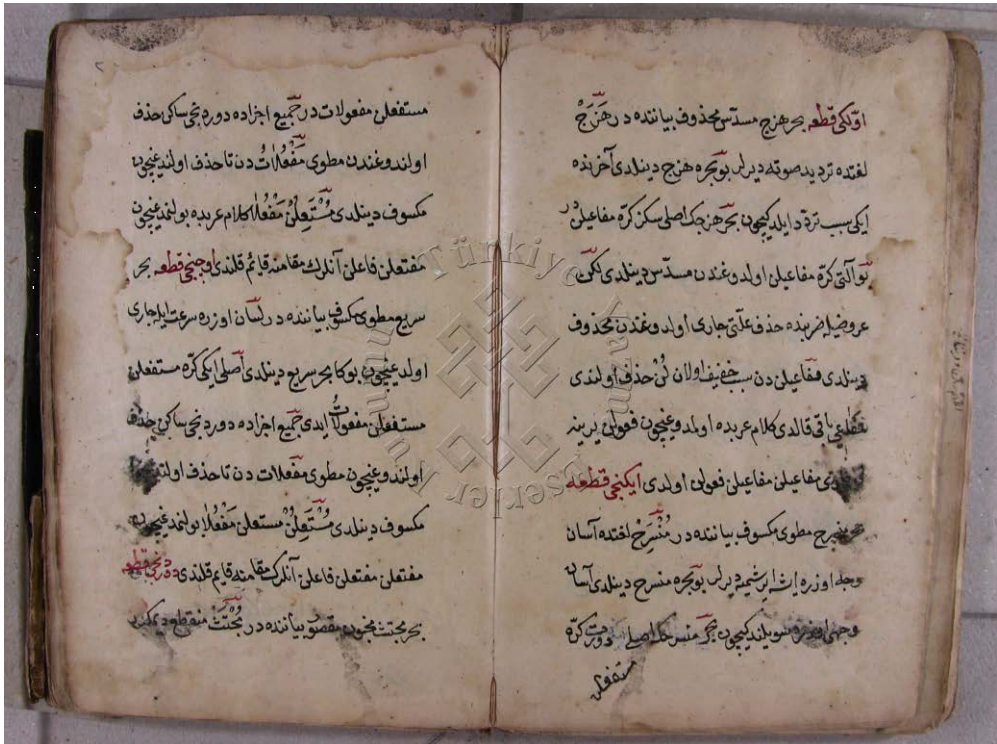 اوّلكی قطعه بحر هزج مسدّس محذوف بیاننده در هَزَجْ
لغتده تردید صوته دیرلر بو بحره هزج دینلدی آخرنده
ایكی سبب تردّد ایلدیكیچون بحر هزجك اصلی سكز كرّه مفاعیلن در
بو آلتی كرّه مفاعیلن اولدوغندن مسدّس دینلدی لكن
عروضیله ضربنده حذف علّتی جاری اولدوغندن محذوف
دینلدی مفاعیلن دن سبب خفیف اولان لُنْ حذف اولندی
مفاعی باقی قالدی كلام عربده اولمدوغیچون فعولن یرینه
مفاعیلن مفاعیلن فعولن اولدی ایكنجی قطعه
بحر منسرح مطوی مكسوف بیاننده در مُنْسَرِحْ لغتده آسان
وجه اوزره ایشه دیرلر بو بحره منسرح دینلدی آسان
وجه اوزره سویلندیكیچون بحر منسرحك اصلی دورت كرّه
مستفعلن
مستفعلن مفعولات در جمیع اجزاده دوردنجی ساكن حذف
اولندوغندن مطوی مَفْعُلاتُ دن تا حذف اولندیغیچون
مكسوف دینلدی مُسْتَعِلُنْ مَفْعُلا كلام عربده بولنمدیغیچون
مفتعلن فاعلن آنلرك مقامنه قائم قلندی اوچنجی قطعه بحر
سریع مطوی مكسوف بیاننده در لسان اوزره سرعت ایله جاری
اولدیغیچون بوكا بحر سریع دینلدی اصلی ایكی كرّه مستفعلن
مستفعلن مفعولاتُ ایدی جمیع اجزاده دوردنجی ساكن حذف
اولندوغیچون مطوی مفعلات دن تا حذف اولندیغیچون
مكسوف دینلدی مُسْتَعِلُنْ مستعلن مَفْعُلا بولنمدیغیچون
مفتعلن مفتعلن فاعلن آنلرك مقامنه قایم قلندی دوردنجی قطعه
بحر مجتث مخبون مقصور بیاننده در مُجْتَثْ منقطع دیمكدر